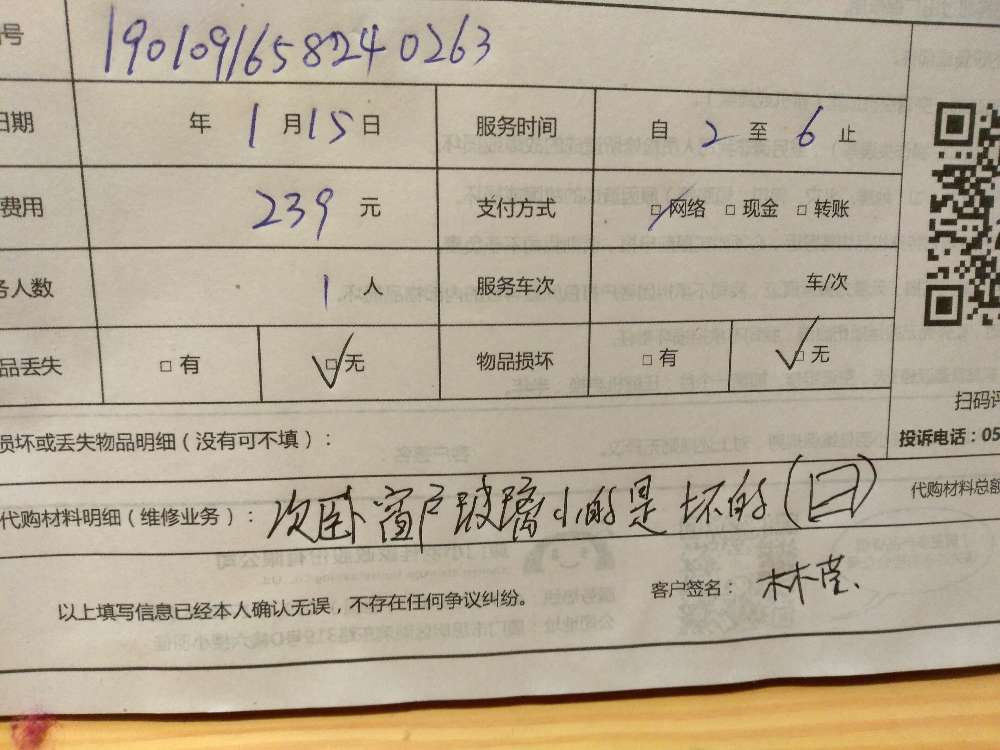 号 1901091658240263
日期 年 1 月 15 日 服务时间 自 2 至 6 止
费用 239 元 支付方式 □网络 □现金 □转账
务人数 1 人 服务车次 车/次
品丢失 □有 □无 物品损坏 □有 □无
扫码评
损坏或丢失物品明细（没有可不填）： 投诉电话：05
代购材料明细（维修业务）： 次卧窗户玻璃小的是坏的(日) 代购材料总额
以上填写信息已经本人确认无误，不存在任何争议纠纷。 客户签名： 林莹.